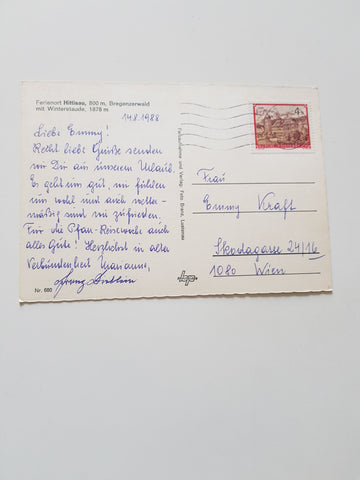 Ferienort Hittisau, 800 m, Bregenzerwald
mit Winterstaude, 1878 m
14.8.1988
Liebe Emmy!
Recht liebe Grüße senden
wir Dir aus unserem Urlaub.
Es geht uns gut, wir fühlen
uns wohl und auch wetter-
mäßig sind wir zufrieden.
Für die Pfarr-Reisewoche auch
alles Gute! Herzlichst in alter
Verbundenheit Marianne,
Nr. 680
Farbaufnahme und Verlag: Foto Branz, Lustenau
4 S
Frau
Emmy Kraft
Skodagasse 24/16
1080 Wien